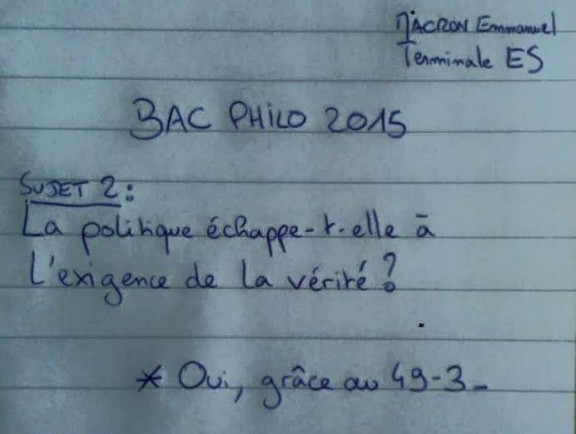 MACRON Emmanuel
Terminale ES
BAC PHILO 2015
SUJET 2:
La politique échappe-t-elle à
l'exigence de la vérité?
* Oui, grâce au 49-3_